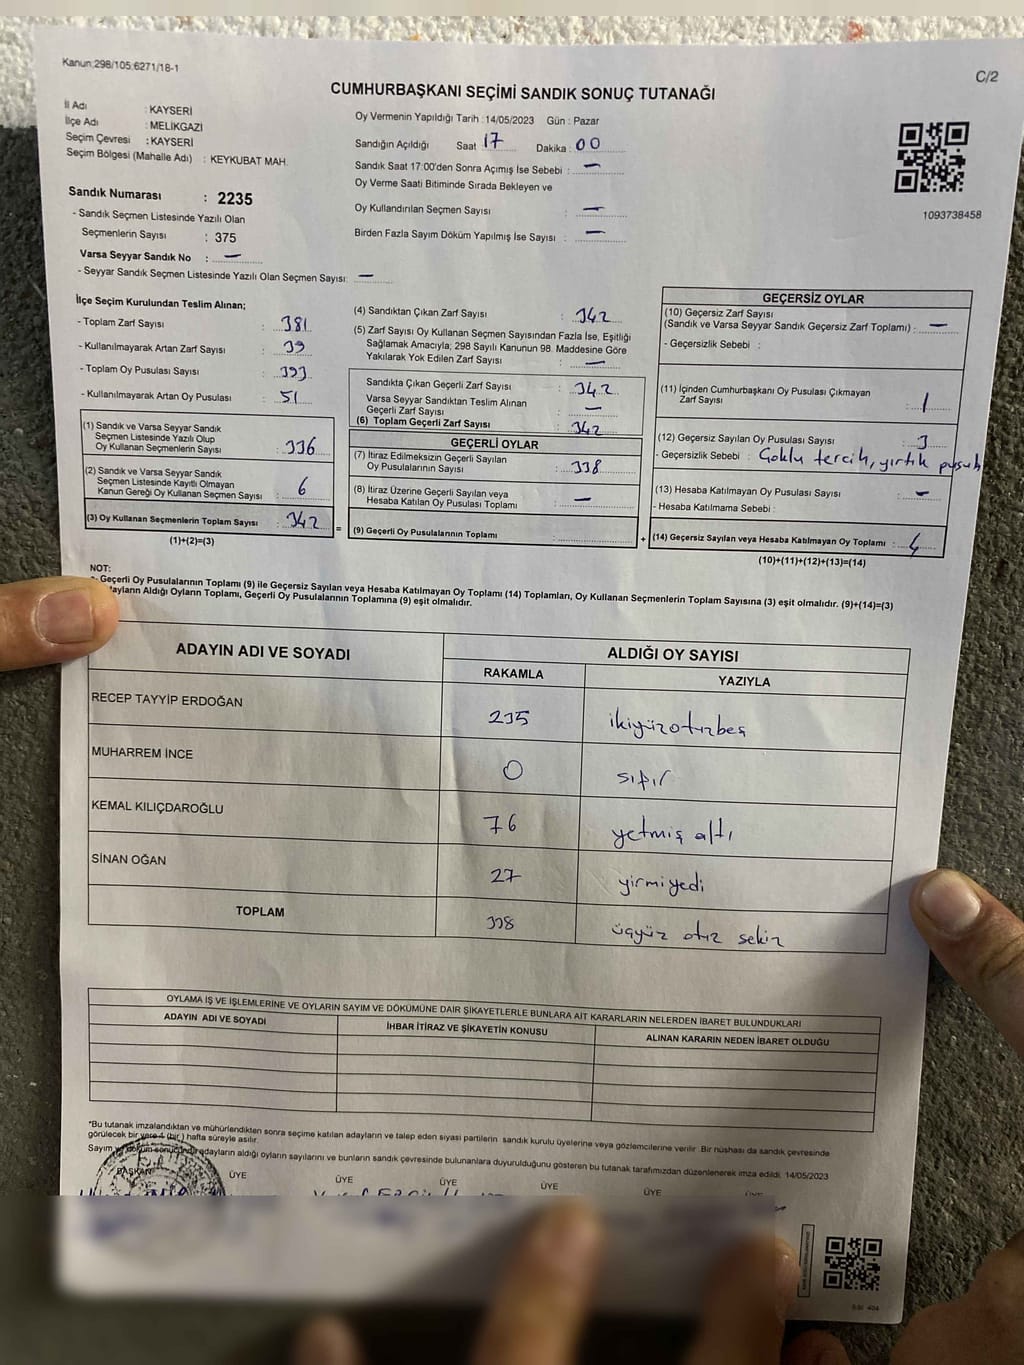 Kanun:298/105;6271/18-1
C/2
CUMHURBAŞKANI SEÇİMİ SANDIK SONUÇ TUTANAĞI
İl Adı : KAYSERİ
İlçe Adı : MELİKGAZİ
Seçim Çevresi : KAYSERİ
Seçim Bölgesi (Mahalle Adı) : KEYKUBAT MAH.
Oy Vermenin Yapıldığı Tarih : 14/05/2023 Gün : Pazar
Sandığın Açıldığı Saat 17 Dakika : 00
Sandık Saat 17:00'den Sonra Açımış İse Sebebi : —
Oy Verme Saati Bitiminde Sırada Bekleyen ve
Oy Kullandırılan Seçmen Sayısı : —
Birden Fazla Sayım Döküm Yapılmış İse Sayısı : —
1093738458
Sandık Numarası : 2235
- Sandık Seçmen Listesinde Yazılı Olan
Seçmenlerin Sayısı : 375
Varsa Seyyar Sandık No : —
- Seyyar Sandık Seçmen Listesinde Yazılı Olan Seçmen Sayısı: —
İlçe Seçim Kurulundan Teslim Alınan;
- Toplam Zarf Sayısı : 381
- Kullanılmayarak Artan Zarf Sayısı : 39
- Toplam Oy Pusulası Sayısı : 393
- Kullanılmayarak Artan Oy Pusulası : 51
(1) Sandık ve Varsa Seyyar Sandık
Seçmen Listesinde Yazılı Olup
Oy Kullanan Seçmenlerin Sayısı : 336
(2) Sandık ve Varsa Seyyar Sandık
Seçmen Listesinde Kayıtlı Olmayan
Kanun Gereği Oy Kullanan Seçmen Sayısı : 6
(3) Oy Kullanan Seçmenlerin Toplam Sayısı : 342 =
(1)+(2)=(3)
(4) Sandıktan Çıkan Zarf Sayısı : 342
(5) Zarf Sayısı Oy Kullanan Seçmen Sayısından Fazla İse, Eşitliği
Sağlamak Amacıyla; 298 Sayılı Kanunun 98. Maddesine Göre
Yakılarak Yok Edilen Zarf Sayısı : —
Sandıkta Çıkan Geçerli Zarf Sayısı : 342
Varsa Seyyar Sandıktan Teslim Alınan
Geçerli Zarf Sayısı : —
(6) Toplam Geçerli Zarf Sayısı : 342
GEÇERLİ OYLAR
(7) İtiraz Edilmeksizin Geçerli Sayılan
Oy Pusulalarının Sayısı : 338
(8) İtiraz Üzerine Geçerli Sayılan veya
Hesaba Katılan Oy Pusulası Toplamı : —
(9) Geçerli Oy Pusulalarının Toplamı : +
GEÇERSİZ OYLAR
(10) Geçersiz Zarf Sayısı
(Sandık ve Varsa Seyyar Sandık Geçersiz Zarf Toplamı) : —
- Geçersizlik Sebebi :
(11) İçinden Cumhurbaşkanı Oy Pusulası Çıkmayan
Zarf Sayısı : 1
(12) Geçersiz Sayılan Oy Pusulası Sayısı : 3
- Geçersizlik Sebebi : Çoklu tercih, yırtık pusula
(13) Hesaba Katılmayan Oy Pusulası Sayısı : —
- Hesaba Katılmama Sebebi :
(14) Geçersiz Sayılan veya Hesaba Katılmayan Oy Toplamı : 4
(10)+(11)+(12)+(13)=(14)
NOT:
Geçerli Oy Pusulalarının Toplamı (9) ile Geçersiz Sayılan veya Hesaba Katılmayan Oy Toplamı (14) Toplamları, Oy Kullanan Seçmenlerin Toplam Sayısına (3) eşit olmalıdır. (9)+(14)=(3)
Aldığı Oyların Toplamı, Geçerli Oy Pusulalarının Toplamına (9) eşit olmalıdır.
ADAYIN ADI VE SOYADI ALDIĞI OY SAYISI
RAKAMLA YAZIYLA
RECEP TAYYİP ERDOĞAN 235 ikiyüzotuzbeş
MUHARREM İNCE 0 sıfır
KEMAL KILIÇDAROĞLU 76 yetmiş altı
SİNAN OĞAN 27 yirmiyedi
TOPLAM 338 üçyüz otuz sekiz
OYLAMA İŞ VE İŞLEMLERİNE VE OYLARIN SAYIM VE DÖKÜMÜNE DAİR ŞİKAYETLERLE BUNLARA AİT KARARLARIN NELERDEN İBARET BULUNDUKLARI
ADAYIN ADI VE SOYADI İHBAR İTİRAZ VE ŞİKAYETİN KONUSU ALINAN KARARIN NEDEN İBARET OLDUĞU
*Bu tutanak imzalandıktan ve mühürlendikten sonra seçime katılan adayların ve talep eden siyasi partilerin sandık kurulu üyelerine veya gözlemcilerine verilir. Bir nüshası da sandık çevresinde
görülecek bir yere 1 (bir) hafta süreyle asılır.
Sayım ve döküm sonucunda adayların aldığı oyların sayılarını ve bunların sandık çevresinde bulunanlara duyurulduğunu gösteren bu tutanak tarafımızdan düzenlenerek imza edildi. 14/05/2023
BAŞKAN ÜYE ÜYE ÜYE ÜYE ÜYE